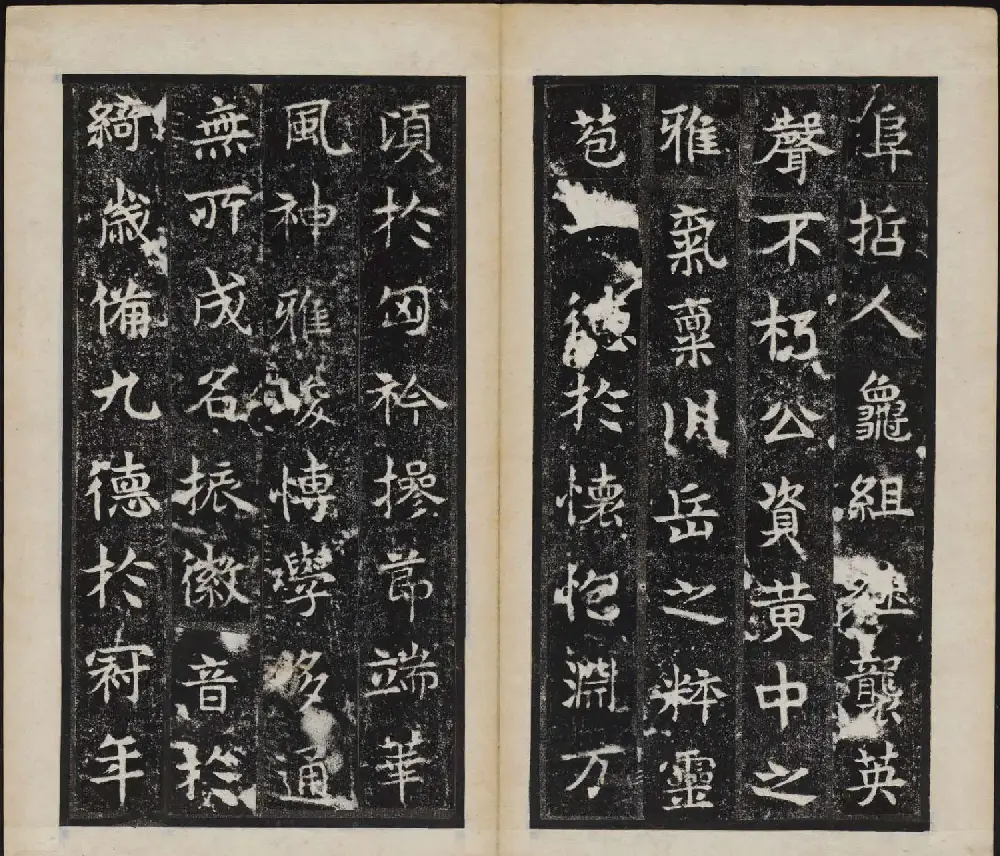 阜哲人龜組繼襲英
聲不朽公資黄中之
雅氣稟川岳之粹靈
苞德於懷抱淵万
頃於匈衿操節端華
風神雅峻愽學多通
無所成名振徽音於
綺歲備九德於冠年